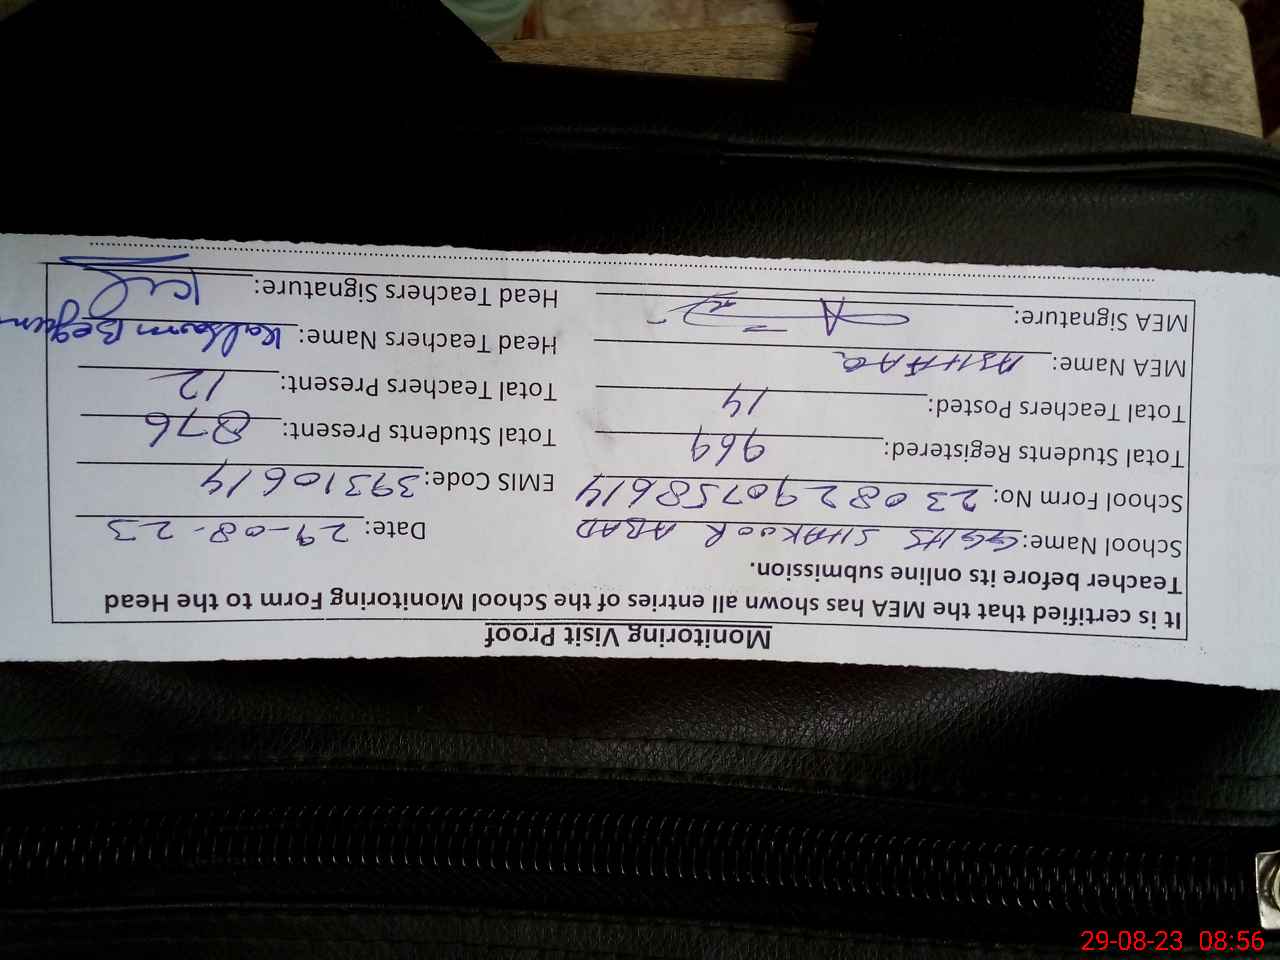 Monitoring Visit Proof
It is certified that the MEA has shown all entries of the School Monitoring Form to the Head
Teacher before its online submission.
School Name: GGHS SHAKOOR ABAD Date: 29-08-23
School Form No: 2308290758614 EMIS Code: 39310614
Total Students Registered: 969 Total Students Present: 876
Total Teachers Posted: 14 Total Teachers Present: 12
MEA Name: ASHFAQ Head Teachers Name: Kalsum Begum
MEA Signature: Head Teachers Signature:
29-08-23 08:56